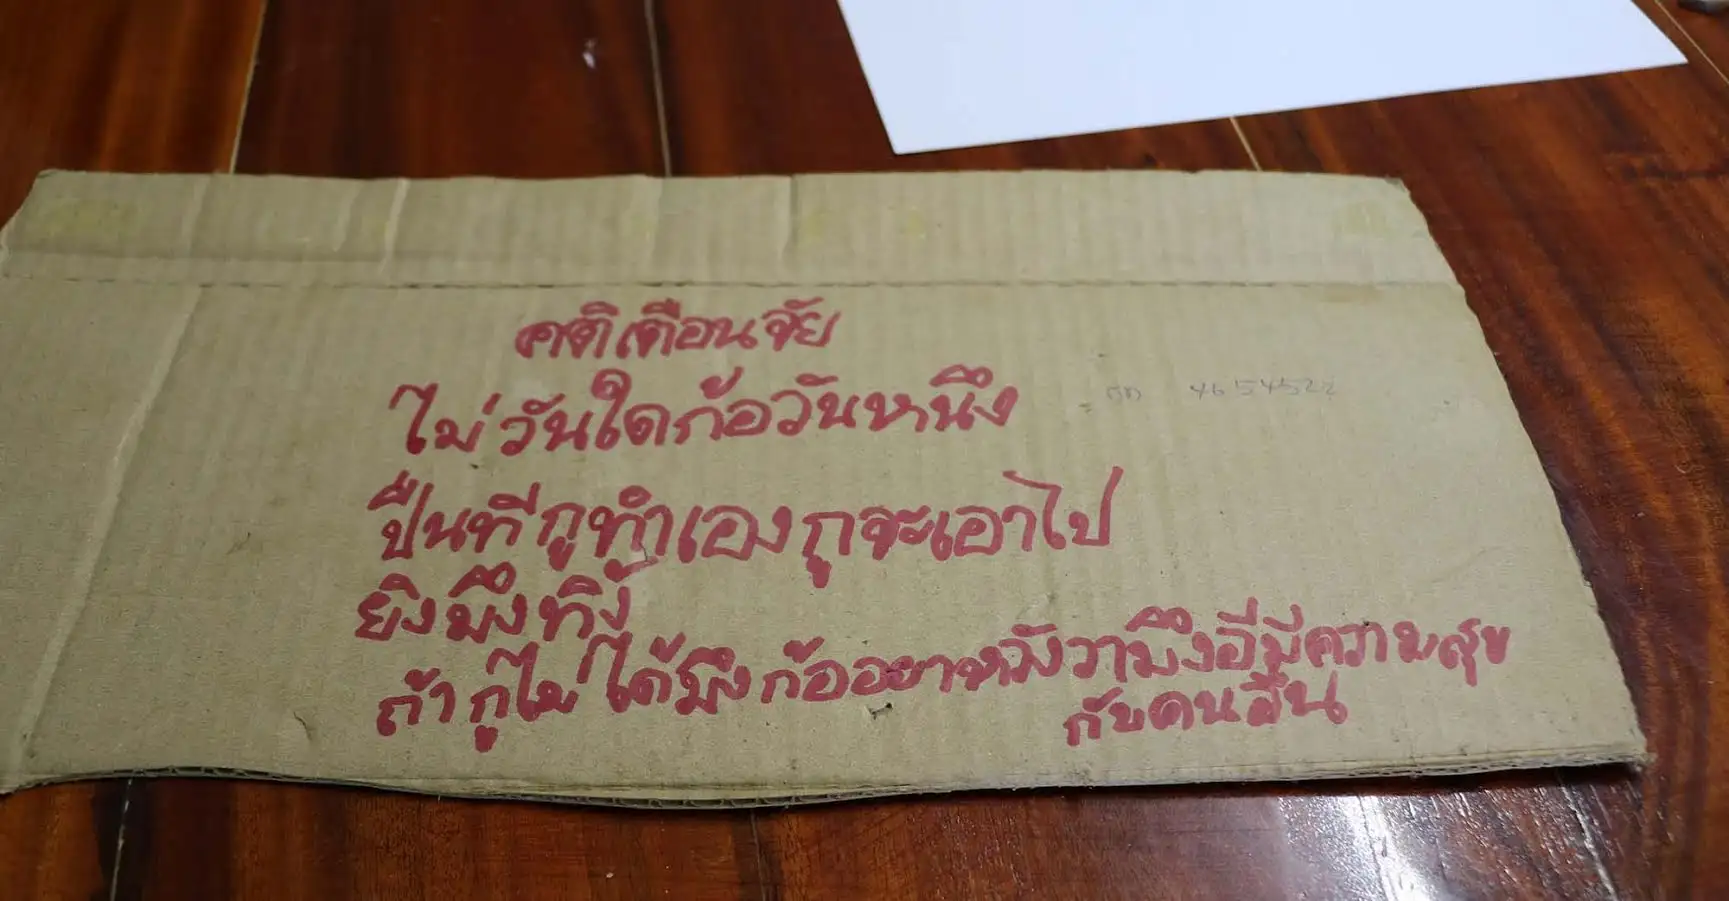 คติเตือนจัย
ไม่วันใดก้อวันหนึ่ง
ปืนทีกูทำเองกูจะเอาไป
ยิงมึงทิ้ง
ถ้ากูไม่ได้มึงก้ออยาหวังวามึงอีมีความสุข
กับคนอื่น
4654522